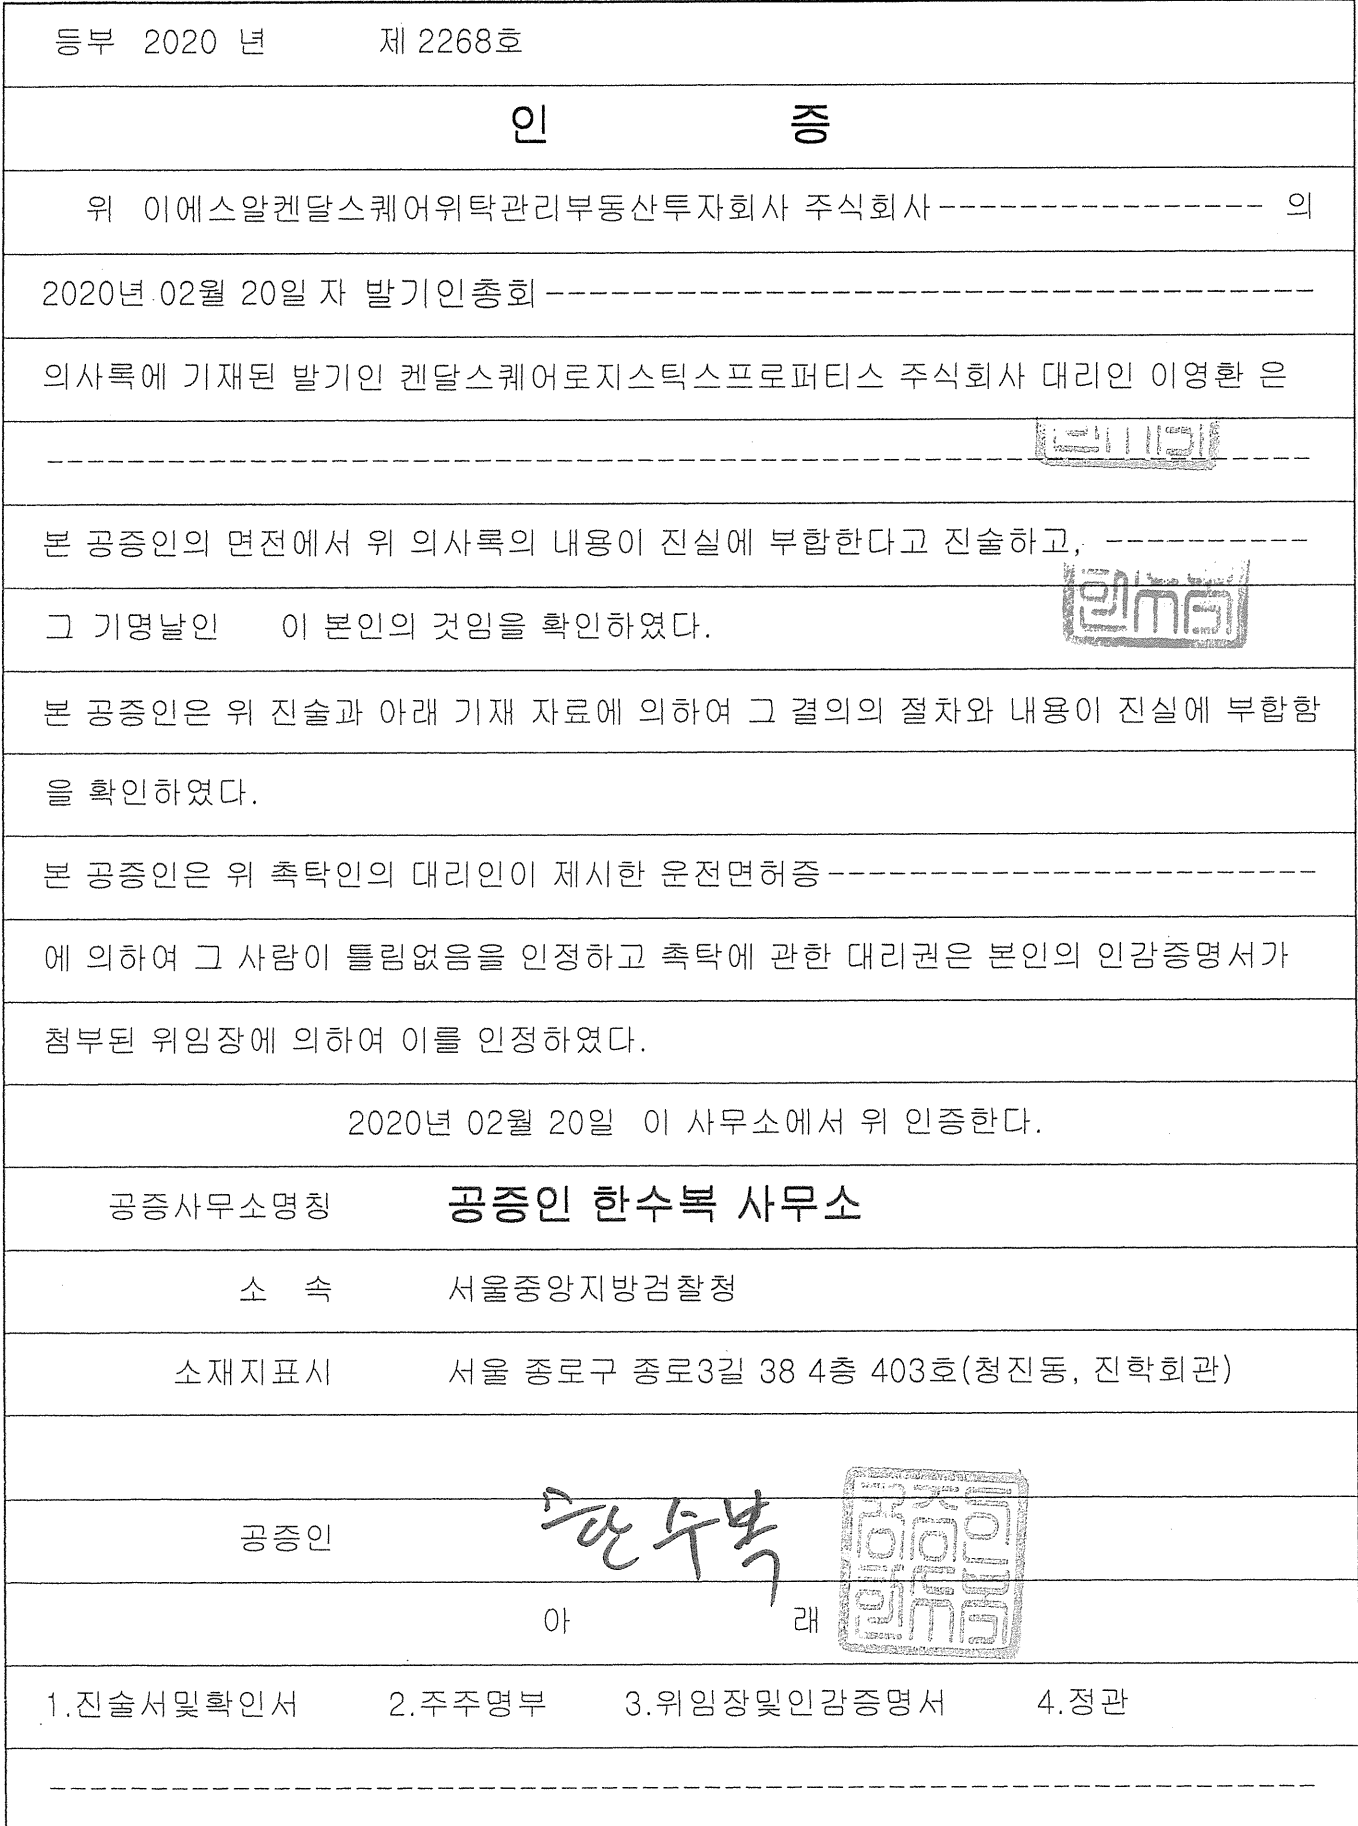 등부 2020 년 제 2268호
인 증
위 이에스알켄달스퀘어위탁관리부동산투자회사 주식회사---------------- 의
2020년 02월 20일 자 발기인총회--------------------------------------
의사록에 기재된 발기인 켄달스퀘어로지스틱스프로퍼티스 주식회사 대리인 이영환 은
---------------------------------------------------------------
본 공증인의 면전에서 위 의사록의 내용이 진실에 부합한다고 진술하고, ----------
그 기명날인 이 본인의 것임을 확인하였다.
본 공증인은 위 진술과 아래 기재 자료에 의하여 그 결의의 절차와 내용이 진실에 부합함
을 확인하였다.
본 공증인은 위 촉탁인의 대리인이 제시한 운전면허증------------------------
에 의하여 그 사람이 틀림없음을 인정하고 촉탁에 관한 대리권은 본인의 인감증명서가
첨부된 위임장에 의하여 이를 인정하였다.
2020년 02월 20일 이 사무소에서 위 인증한다.
공증사무소명칭 공증인 한수복 사무소
소 속 서울중앙지방검찰청
소재지표시 서울 종로구 종로3길 38 4층 403호(청진동, 진학회관)
공증인 한수복
아 래
1.진술서및확인서 2.주주명부 3.위임장및인감증명서 4.정관
---------------------------------------------------------------